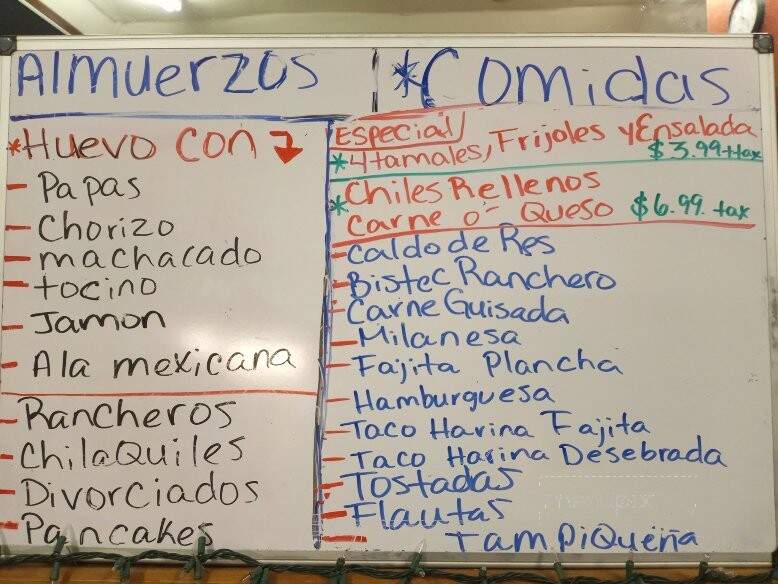 Almuerzos
*Huevo con
- Papas
- Chorizo
- machacado
- tocino
- Jamon
- Ala mexicana
- Rancheros
- ChilaQuiles
- Divorciados
- Pancakes
*Comidas
Especial
*4 tamales, Frijoles y Ensalada
$3.99+tax
*Chiles Rellenos
Carne o- Queso $6.99. tax
- Caldo de Res
- Bistec Ranchero
- Carne Guisada
- Milanesa
- Fajita Plancha
- Hamburguesa
- Taco Harina Fajita
- Taco Harina Desebrada
- Tostadas
- Flautas
- TampiQueña